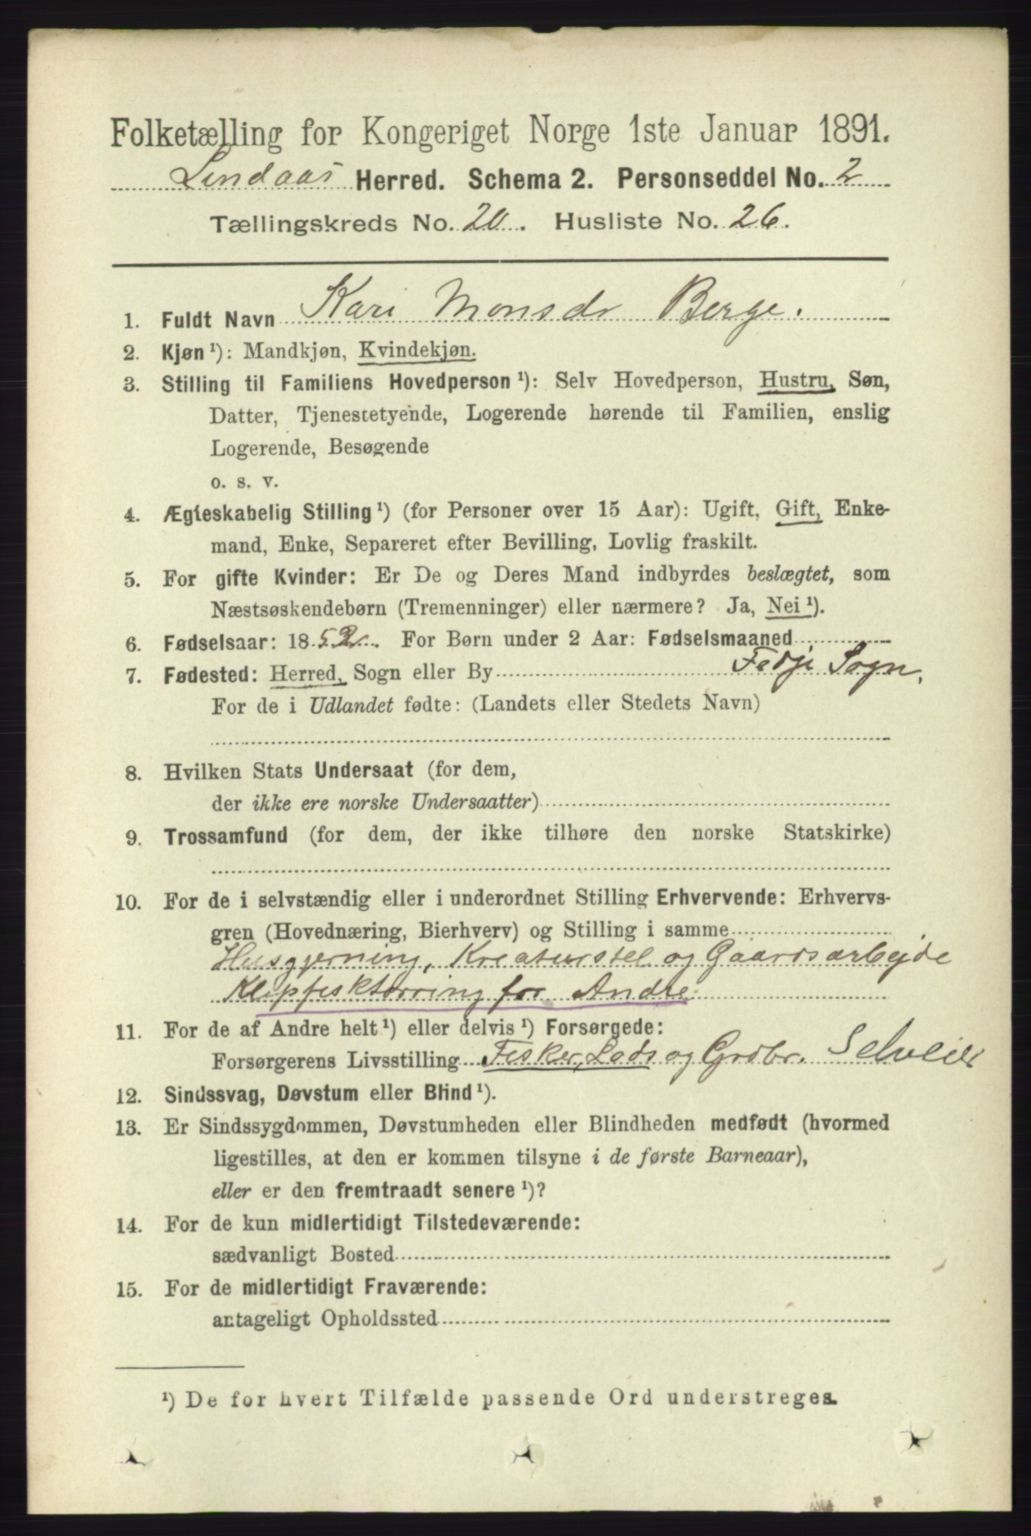 Folketælling for Kongeriget Norge 1ste Januar 1891.
Lindaas Herred. Schema 2. Personseddel No. 2
Tællingskreds No. 20. Husliste No. 26.
1. Fuldt Navn Kari Monsdr Berge.
2. Kjøn ¹): Mandkjøn, Kvindekjøn.
3. Stilling til Familiens Hovedperson ¹): Selv Hovedperson, Hustru, Søn,
Datter, Tjenestetyende, Logerende hørende til Familien, enslig
Logerende, Besøgende
o. s. v.
4. Ægteskabelig Stilling ¹) (for Personer over 15 Aar): Ugift, Gift, Enke-
mand, Enke, Separeret efter Bevilling, Lovlig fraskilt.
5. For gifte Kvinder: Er De og Deres Mand indbyrdes beslægtet, som
Næstsøskendebørn (Tremenninger) eller nærmere? Ja, Nei ¹).
6. Fødselsaar: 1852. For Børn under 2 Aar: Fødselsmaaned
7. Fødested: Herred, Sogn eller By Fedje Sogn.
For de i Udlandet fødte: (Landets eller Stedets Navn)
8. Hvilken Stats Undersaat (for dem,
der ikke ere norske Undersaatter)
9. Trossamfund (for dem, der ikke tilhøre den norske Statskirke)
10. For de i selvstændig eller i underordnet Stilling Erhvervende: Erhvervs-
gren (Hovednæring, Bierhverv) og Stilling i samme
Husgjerning, Kreaturstel og Gaardsarbejde
Klipfisktørring for Andre
11. For de af Andre helt ¹) eller delvis ¹) Forsørgede:
Forsørgerens Livsstilling Fisker, Lods og Grdbr. Selveier
12. Sindssvag, Døvstum eller Blind ¹).
13. Er Sindssygdommen, Døvstumheden eller Blindheden medfødt (hvormed
ligestilles, at den er kommen tilsyne i de første Barneaar),
eller er den fremtraadt senere ¹)?
14. For de kun midlertidigt Tilstedeværende:
sædvanligt Bosted
15. For de midlertidigt Fraværende:
antageligt Opholdssted
¹) De for hvert Tilfælde passende Ord understreges.